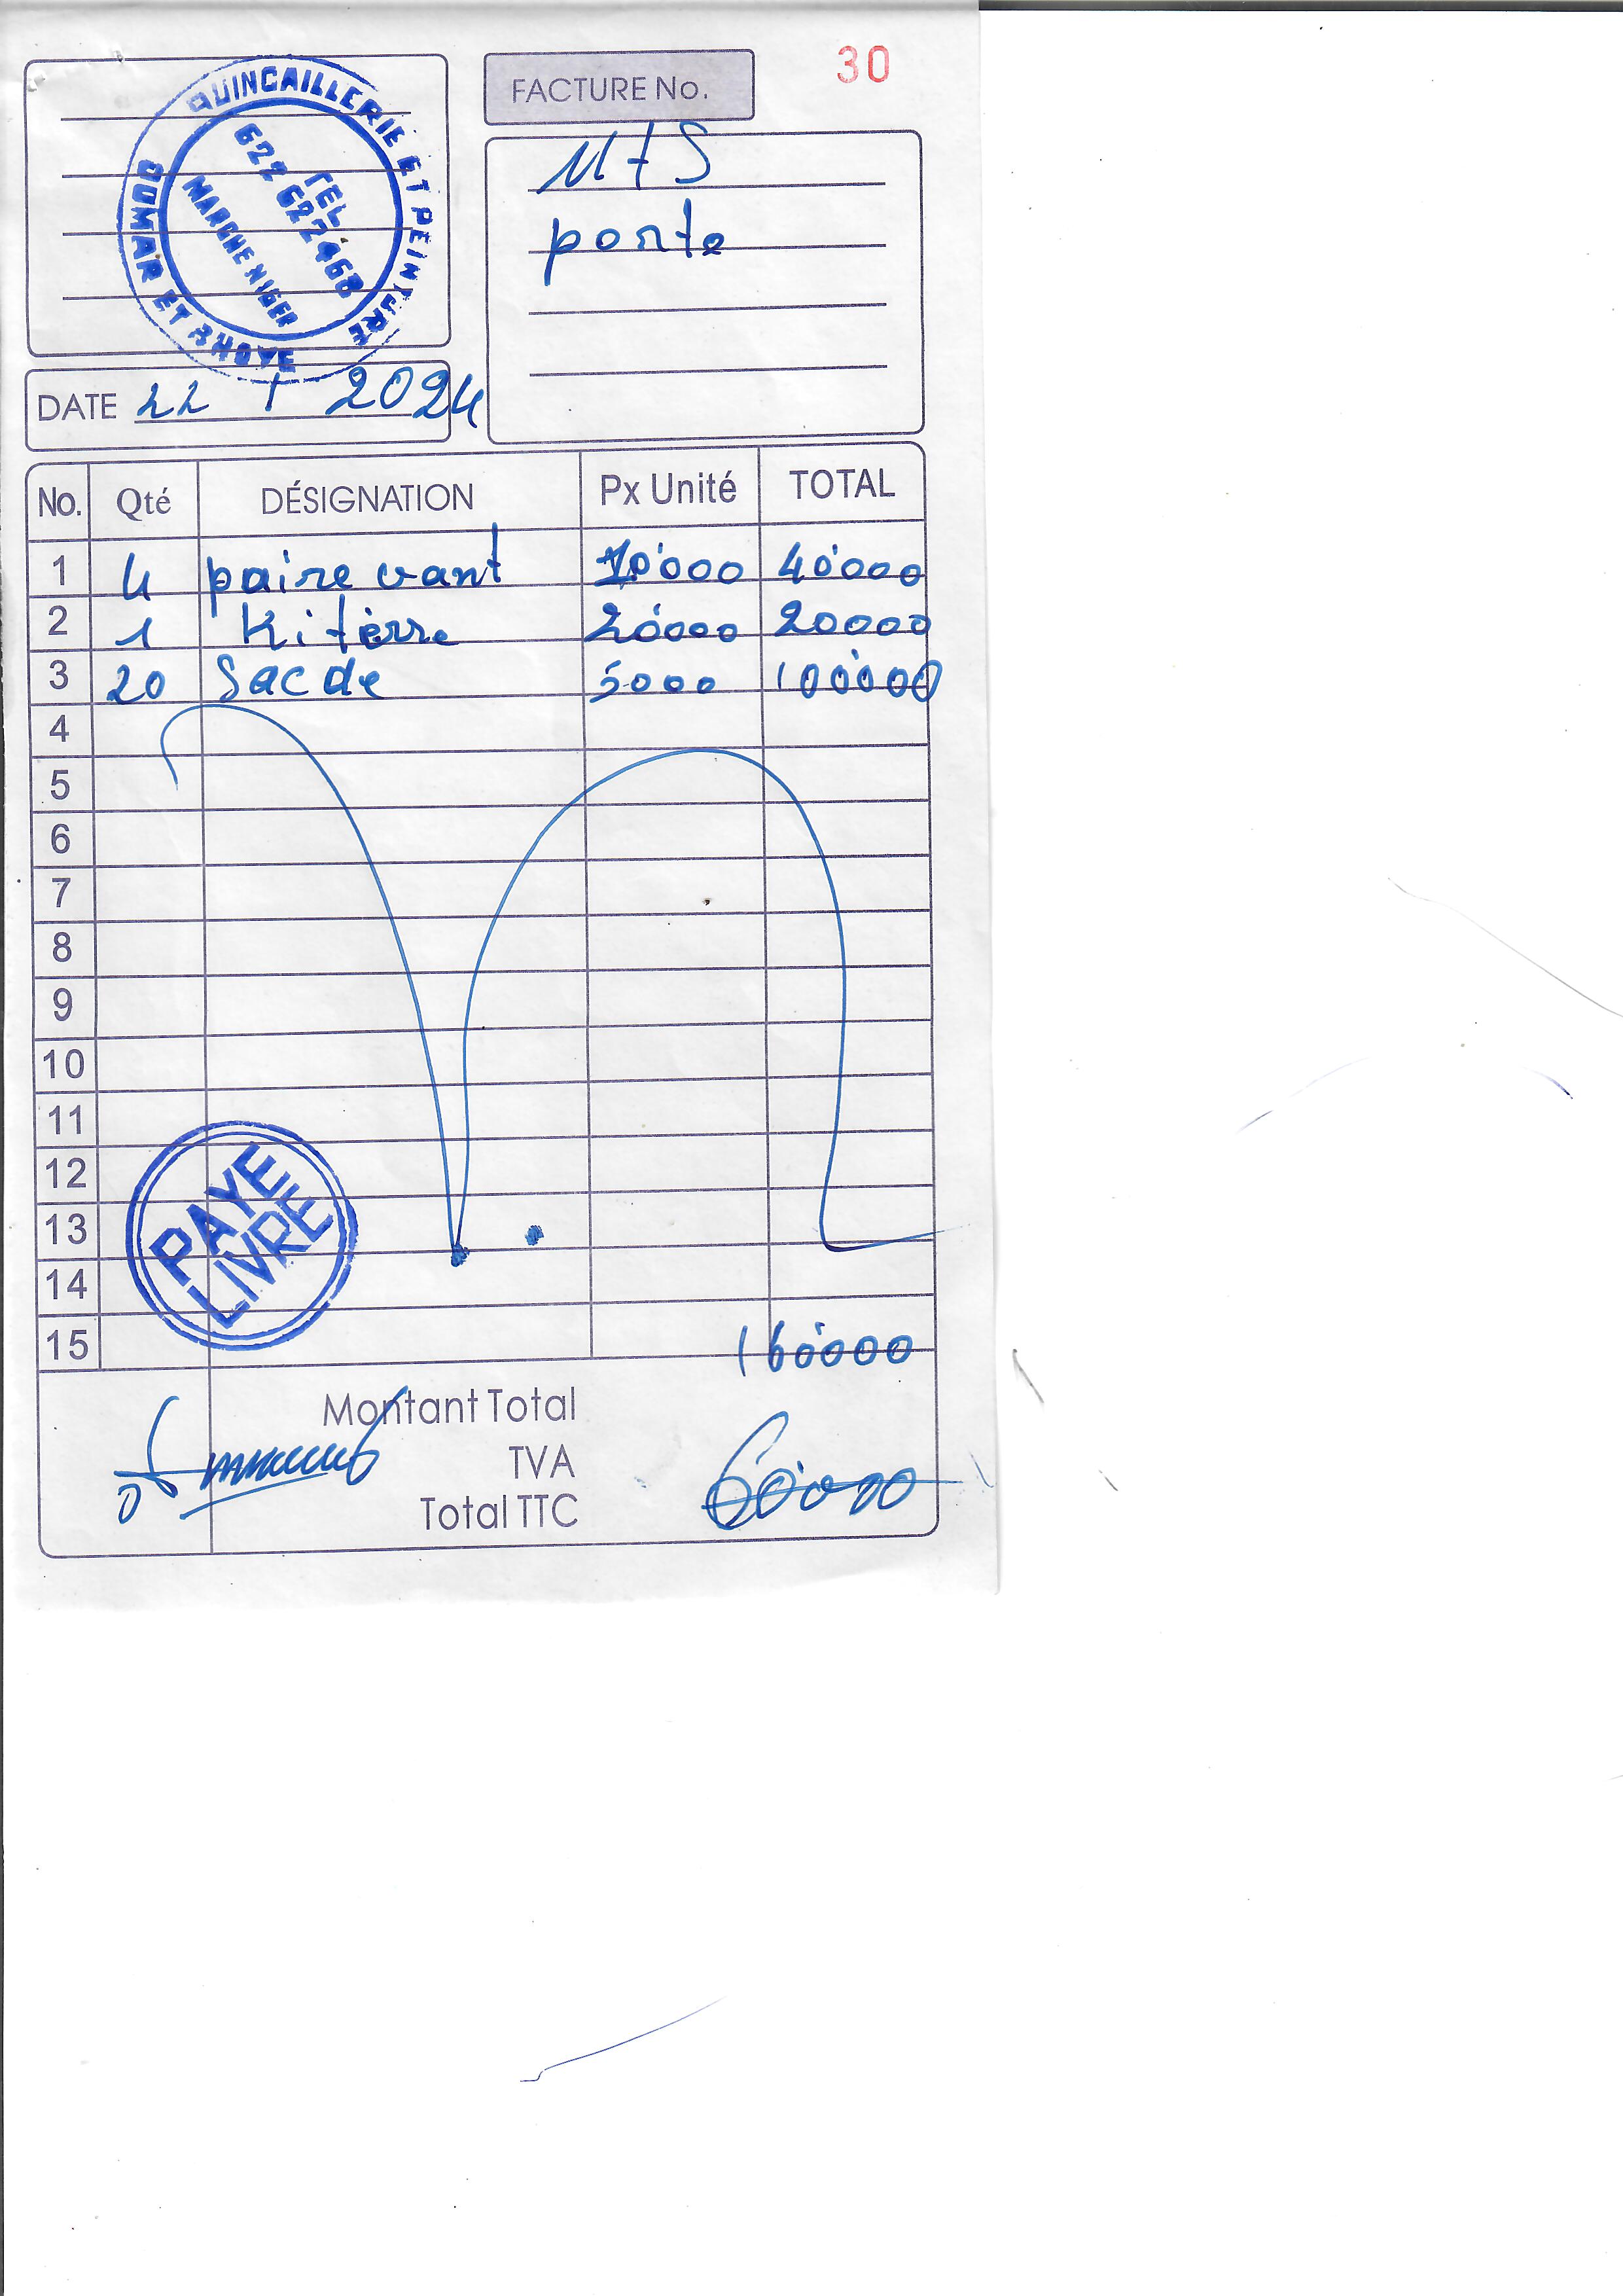 QUINCAILLERIE ET PEINTURE
OUMAR ET
TEL
622 622468
MARCHE NIGER
FACTURE No.
30
porte
DATE 22 1 2024
No. Qté DÉSIGNATION Px Unité TOTAL
1 4 paire vant 10'000 40'000
2 1 Kitèrre 20'000 20000
3 20 Sac de 5000 100'000
4
5
6
7
8
9
10
11
12
13
14
15 160'000
PAYE
LIVRE
Montant Total
TVA
Total TTC 60'000